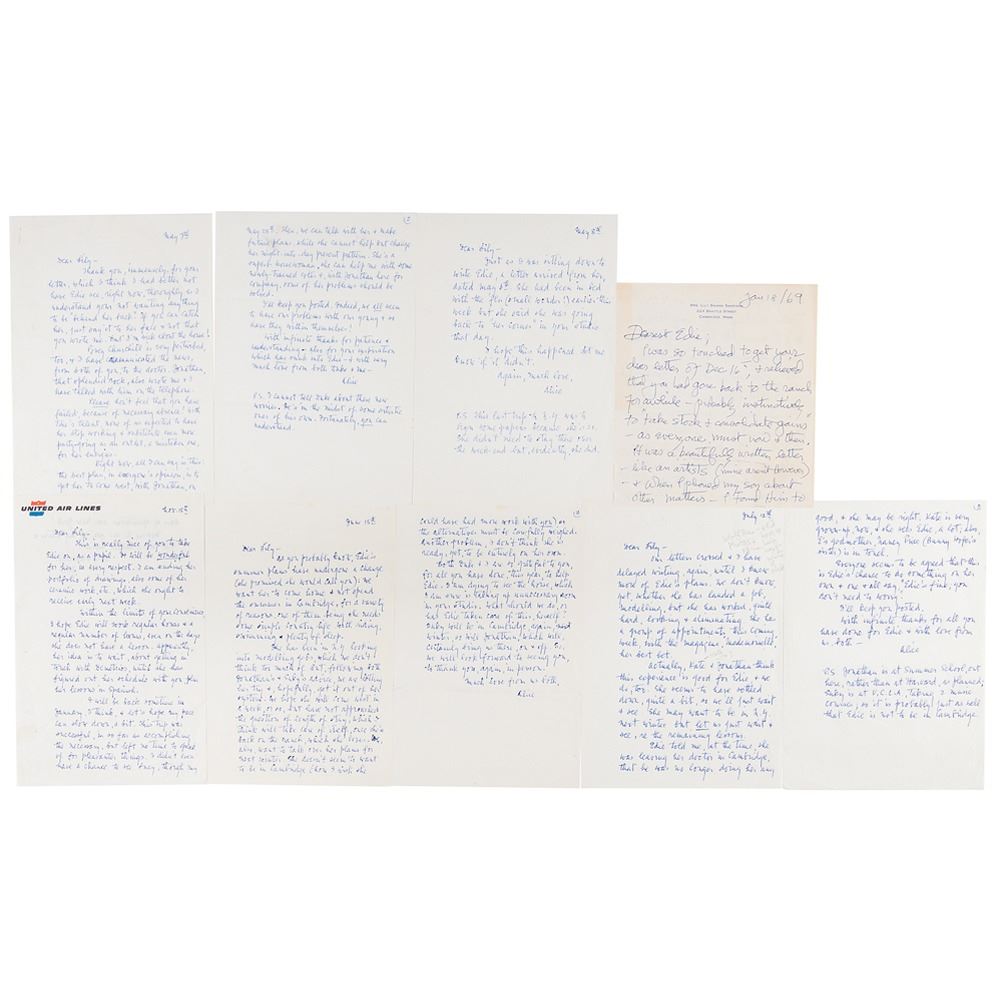 May 7th
Dear Lily-
Thank you, immensely, for your
letter, which I think I had better not
have Edie see, right now, thoroughly as I
understand your not wanting anything
to be "behind her back". If you can catch
her, just say it to her face & not that
you wrote me. But I'm sick about the hours!
Corey Churchill is very perturbed,
too, & I have communicated the news,
from both of you, to the doctor. Jonathan,
that splendid rock, also wrote me & I
have talked with him on the telephone.
Please don't feel that you have
failed, because of necessary absence! With
Edie's talent, none of us expected to have
her stop working & substitute even more
partygoing as an outlet, a mistaken one,
for her energies.
Right now, all I can say is this:
the best plan, in everyone's opinion, is to
get her to come west, with Jonathan, on
2
May 28th. Then, we can talk with her & make
future plans, while she cannot help but change
her night-into-day present pattern. She's a
superb horsewoman, she can help me with some
newly-trained colts &, with Jonathan here for
company, some of her problems should be
solved.
I'll keep you posted. Indeed, we all seem
to have our problems with our young & or
have they within themselves!
With infinite thanks for patience &
understanding & also for your inspiration
which has sunk into Edie & with very
much love from both take &
Alice
P.S. I cannot tell Duke about these new
worries. He's in the midst of some artistic
ones of his own. Fortunately, you can
understand.
May 8th
Dear Lily-
Just as I was sitting down to
write Edie, a letter arrived from her,
dated May 5th. She had been in bed
with the flu (small wonder!) earlier this
week but she said she was going
back to "her corner" in your studio
that day.
I hope this happened. Let me
know if it didn't.
Again, much love,
Alice
P.S. This last trip to N.Y. was to
sign some papers because she is 21.
She didn't need to stay there over
the week-end but, evidently, she did.
Mrs. Lily Swann Saarinen
224 Brattle Street
Cambridge, Mass.
Jan 18/69
Dearest Edie;
I was so touched to get your
dear letter of Dec 16th, & relieved
that you had gone back to the ranch
for awhile - probably instinctively
to "take stock & consolidate gains"
- as everyone must now & then.
It was a beautifully written letter
- like an artists (mine aren't however)
- & when I phoned my son about
other matters - I found him to
UNITED AIR LINES
Nov. 15th
Dear Lily-
This is really nice of you to take
Edie on, as a pupil. It will be wonderful
for her, in every respect. I am sending her
portfolio of drawings, also some of her
ceramic work, etc., which she ought to
receive early next week.
Within the limits of your convenience,
I hope Edie will work regular hours & a
regular number of times, even on the days
she does not have a lesson. Apparently,
her idea is to wait, about getting in
touch with Demetrios, until she has
figured out her schedule with you plus
her lessons in Spanish.
I will be back sometime in
January, I think, & let's hope my pace
can slow down, a bit. This trip was
successful, in so far as accomplishing
the necessary, but left no time to speak
of for pleasanter things. I didn't even
have a chance to see
June 15th
Dear Lily-
As you probably know, Edie's
summer plans have undergone a change
(she promised she would call you): we
want her to come home & not spend
the summer in Cambridge, for a variety
of reasons, one of them being she needs
some simple country life with riding,
swimming & plenty of sleep.
She has been in N.Y. looking
into modelling jobs, which we don't
think too much of but, following both
Jonathan's & Suky's advice, we are letting
her try &, hopefully, get it out of her
system. We hope she will come west in
a week, or so, but have not approached the
question of length of stay, which I
think will take care of itself, once she's
back on the ranch, which she loves. We,
also, want to talk over her plans for
next winter. She doesn't seem to want
to be in Cambridge (how I wish she
2
could have had more work with you) so
the alternatives must be carefully weighed.
Another problem, I don't think she is
ready, yet, to be entirely on her own.
Both Duke & I are so grateful to you
for all you have done, this year, to help
Edie. I am dying to see the horse, which
I am sure is taking up unnecessary room
in your studio. What should we do, or
has Edie taken care of this, herself?
Suky will be in Cambridge, again, next
winter, as will Jonathan, which will
certainly bring us there, on & off. So,
we will look forward to seeing you,
to thank you, again, in person.
Much love from us both,
Alice
July 12th
Dear Lily-
Our letters crossed & I have
delayed writing, again, until I knew
more of Edie's plans. We don't know,
yet, whether she has landed a job,
modelling, but she has worked, quite
hard, looking & eliminating. She has
a group of appointments, this coming
week, with the magazine, Mademoiselle,
her best bet.
Actually, Kate & Jonathan think
this experience is good for Edie & we
do, too. She seems to have settled
down, quite a bit, so we'll just wait
& see. She may want to be in N.Y.
next winter but let us just wait &
see, re the remaining lessons.
Edie told me, at the time, she
was leaving her doctor in Cambridge,
that he was no longer doing her any
2
good, & she may be right. Kate is very
grown-up, now, & she sees Edie, a lot, also,
E's godmother,
is in touch.
Everyone seems to be agreed that this
is Edie's chance to do something on her
own & one & all say, Edie - fine, you
don't need to worry.
I'll keep you posted.
With infinite thanks for all you
have done for Edie & with love from
us both-
Alice
P.S. Jonathan is at Summer School, out
here, rather than at Harvard, as planned;
Suky is at U.C.L.A., taking 2 music
courses, so it is probably just as well
that Edie is not to be in Cambridge.